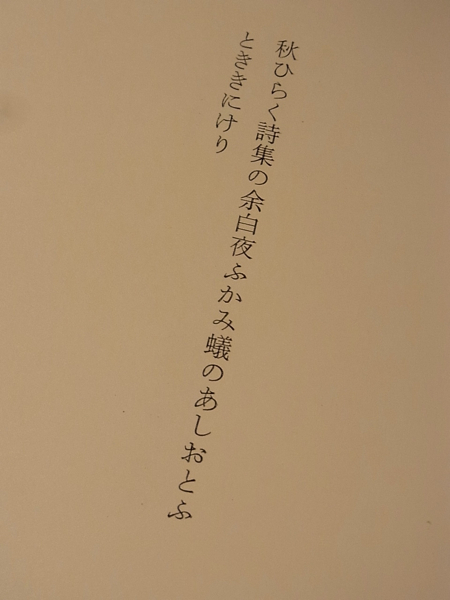 秋ひらく詩集の余白夜ふかみ蟻のあしおとふ
とききにけり